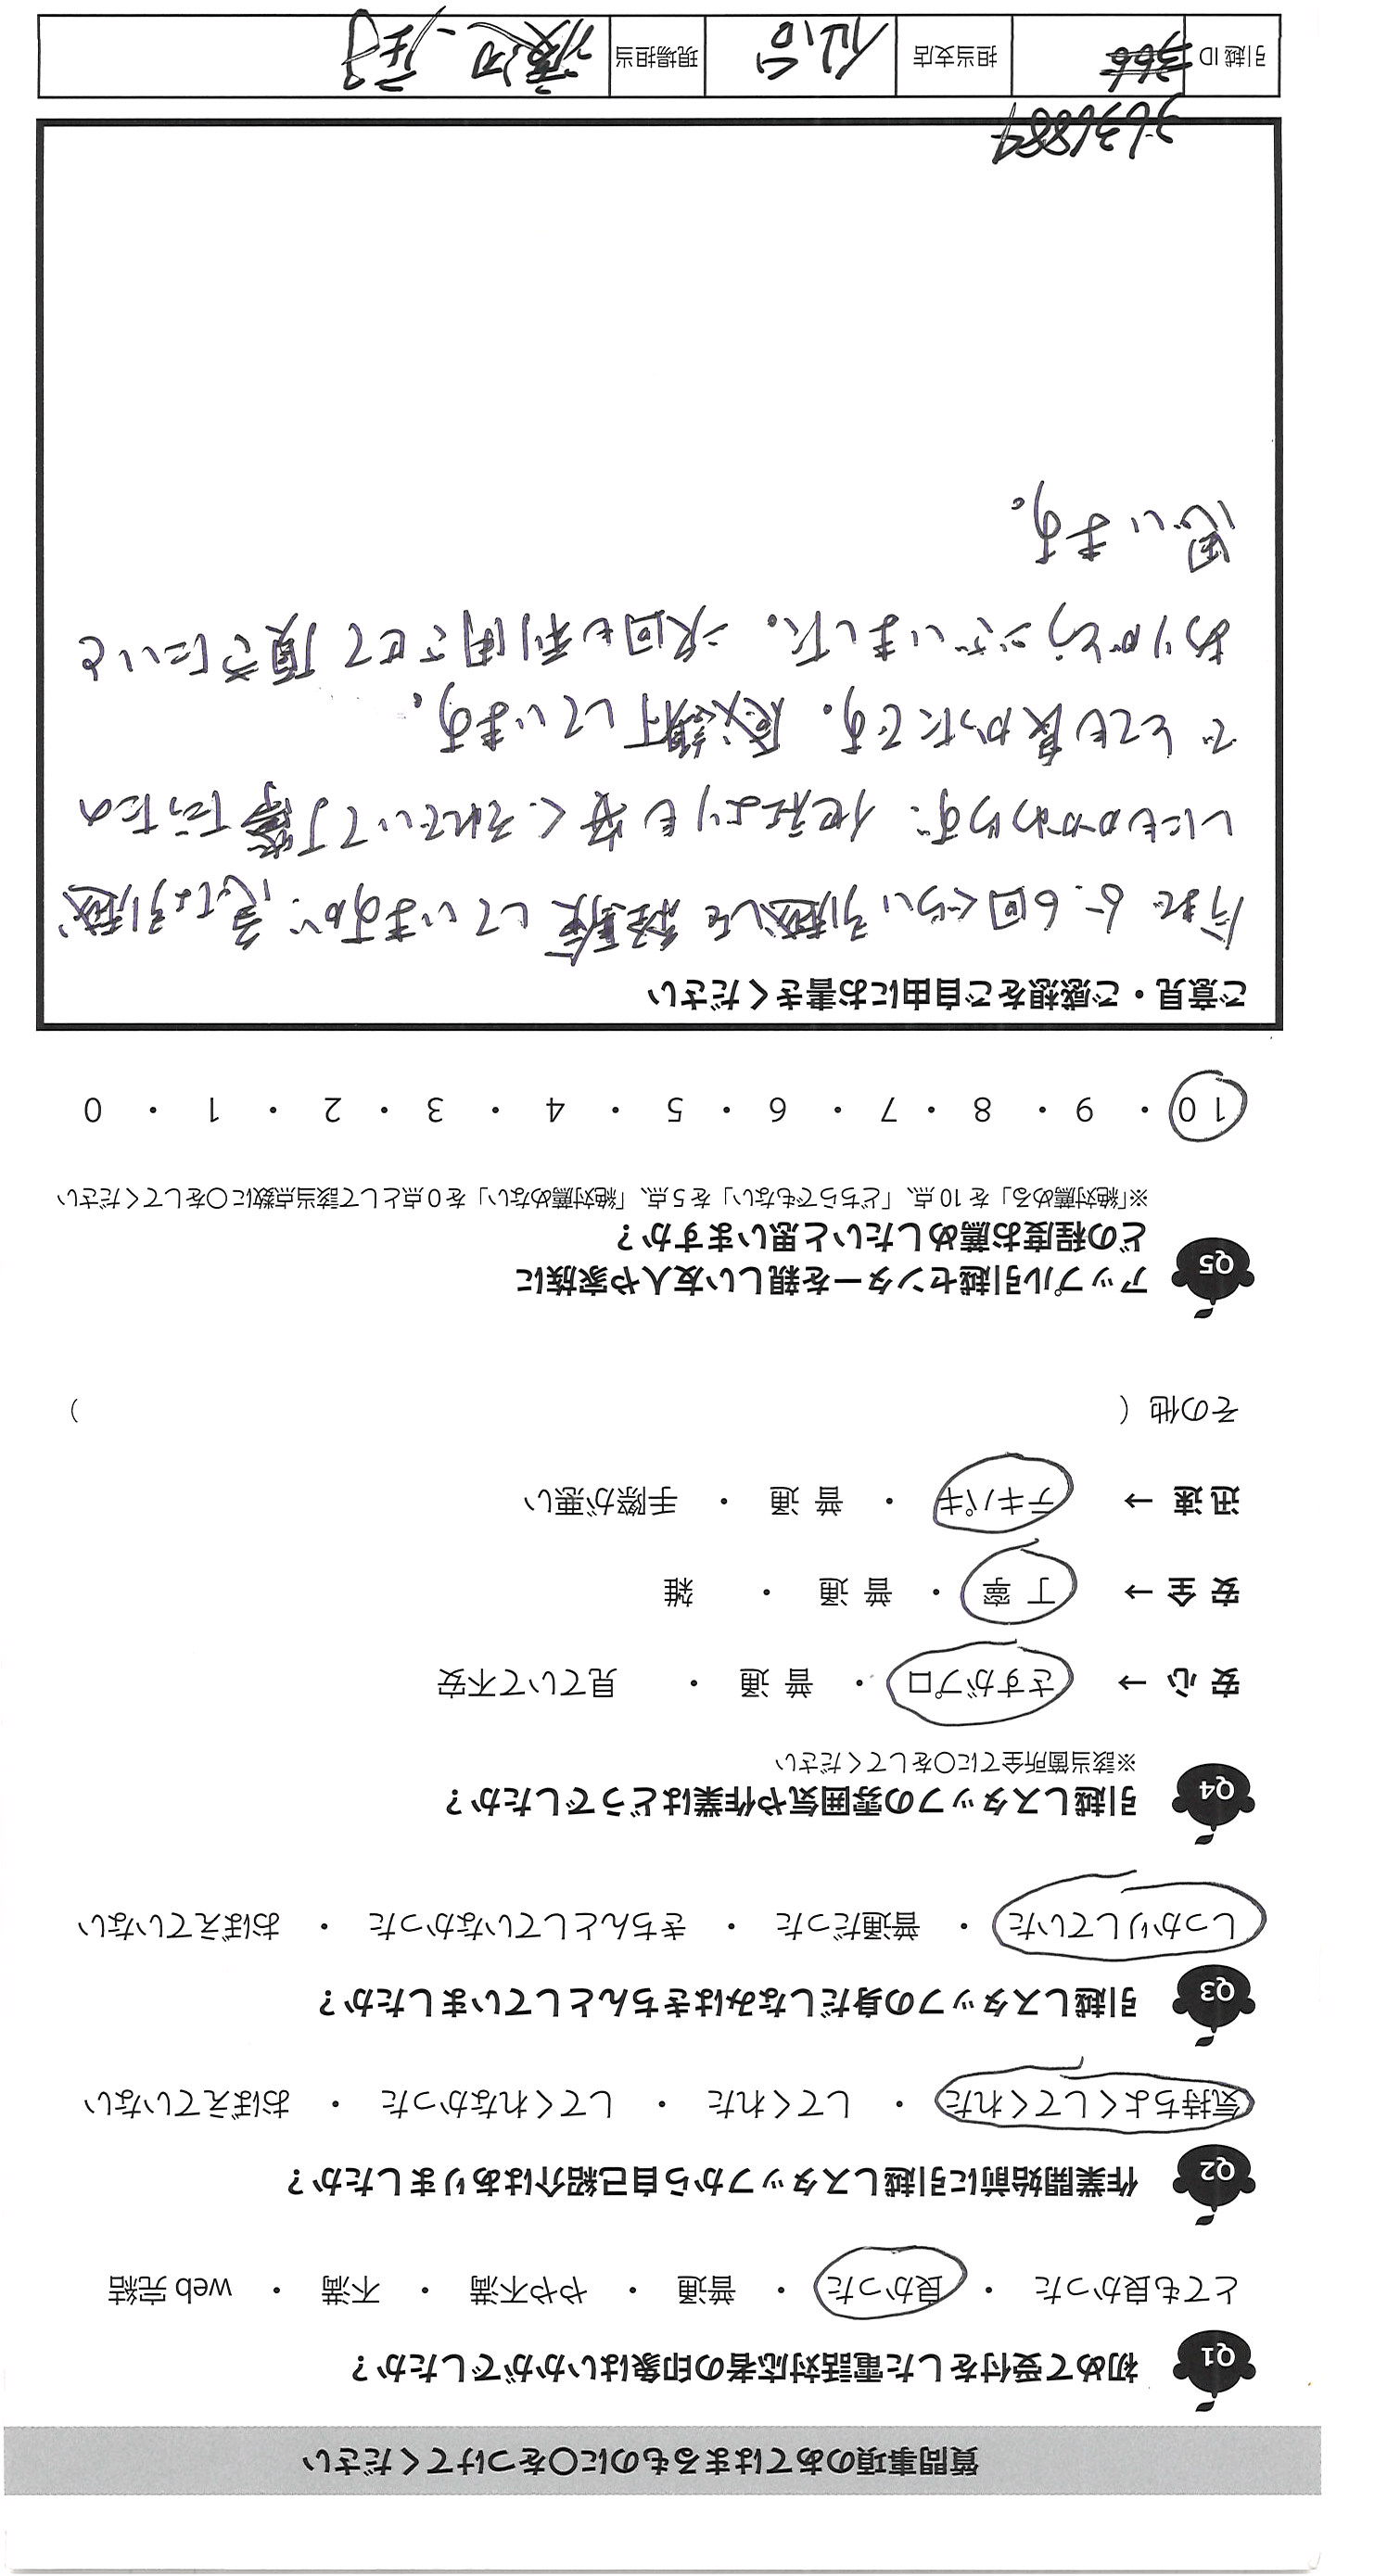 質問事項のあてはまるものに〇をつけてください
Q1 初めて受付をした電話対応者の印象はいかがでしたか？
とても良かった ・ 良かった ・ 普通 ・ やや不満 ・ 不満 ・ web 完結
Q2 作業開始前に引越しスタッフから自己紹介はありましたか？
気持ちよくしてくれた ・ してくれた ・ してくれなかった ・ おぼえていない
Q3 引越しスタッフの身だしなみはきちんとしていましたか？
しっかりしていた ・ 普通だった ・ きちんとしていなかった ・ おぼえていない
Q4 引越しスタッフの雰囲気や作業はどうでしたか？
※該当箇所全てに〇をしてください
安 心 → さすがプロ ・ 普 通 ・ 見ていて不安
安 全 → 丁 寧 ・ 普 通 ・ 雑
迅 速 → テキパキ ・ 普 通 ・ 手際が悪い
その他（ ）
Q5 アップル引越センターを親しい友人や家族に
どの程度お薦めしたいと思いますか？
※「絶対薦める」を 10 点、「どちらでもない」を 5 点、「絶対薦めない」を 0 点として該当点数に〇をしてください
10 ・ 9 ・ 8 ・ 7 ・ 6 ・ 5 ・ 4 ・ 3 ・ 2 ・ 1 ・ 0
ご意見・ご感想をご自由にお書きください
今まで 5、6回ぐらい引越しを経験していますが、急な引越
しにもかかわらず、他社よりも安く、それでいて丁寧だったの
でとても良かったです。感謝しています。
ありがとうございました。次回も利用させて頂きたいと
思います。
3636889
引越 ID 366 担当支店 仙台 現場担当